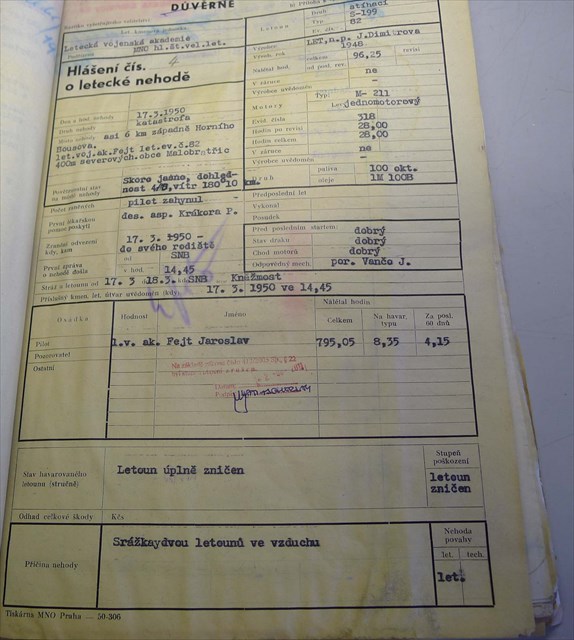 DŮVĚRNĚ
Letecká vojenská akademie
MNO hl.št.vel.let.
Hlášení čís. 4
o letecké nehodě
Den a hod. nehody 17.3.1950
Druh nehody katastrofa
asi 6 km západně Horního
Bousova.
let.voj.ak.Fejt let.ev.č.82
400m severových.obce Malobratřic
Povětrnostní stav na místě nehody Skoro jasno, dohled-
nost 4/8, vítr 180°10 km.
Počet zraněných pilot zahynul -
První lékařskou pomoc poskytl des. asp. Krákora P.
Zranění odvezeni kdy, kam 17. 3. 1950 –
do svého rodiště
První zpráva o nehodě došla od SNB
v hod. 14,45
Stráž u letounu od 17. 3 18.3. SNB Kněžmost
Příslušný kmen. let. útvar uvědoměn (kdy) 17. 3. 1950 ve 14,45
Letoun
Druh stíhací
Typ: S-199
Ev. čís. 82
Výrobce LET,n.p. J.Dimitrova
Výrob. rok 1948
Nalétal hod. celkem 96,25
od posl. rev. revisí
V záruce ne
Výrobce uvědoměn –
Motory Typ: M- 211
jednomotorový
Evid. čísla 318
Hodin po revisi 28,00
Hodin celkem 28,00
V záruce ne
Výrobce uvědoměn –
Druh paliva 100 okt.
oleje 1M 100B
Předposlední let
Vykonal
Posudek
Před posledním startem: dobrý
Stav draku dobrý
Chod motorů dobrý
Odpovědný mech. por. Vančo J.
Osádka Hodnost Jméno Nalétal hodin
Celkem Na havar. typu Za posl. 60 dnů
Pilot l.v. ak. Fejt Jaroslav 795,05 8,35 4,15
Pozorovatel
Ostatní
Stav havarovaného letounu (stručně) Letoun úplně zničen
Stupeň poškození
letoun
zničen
Odhad celkové škody Kčs
Příčina nehody Srážkaydvou letounů ve vzduchu
Nehoda povahy
let. tech.
let.
Tiskárna MNO Praha — 50-306